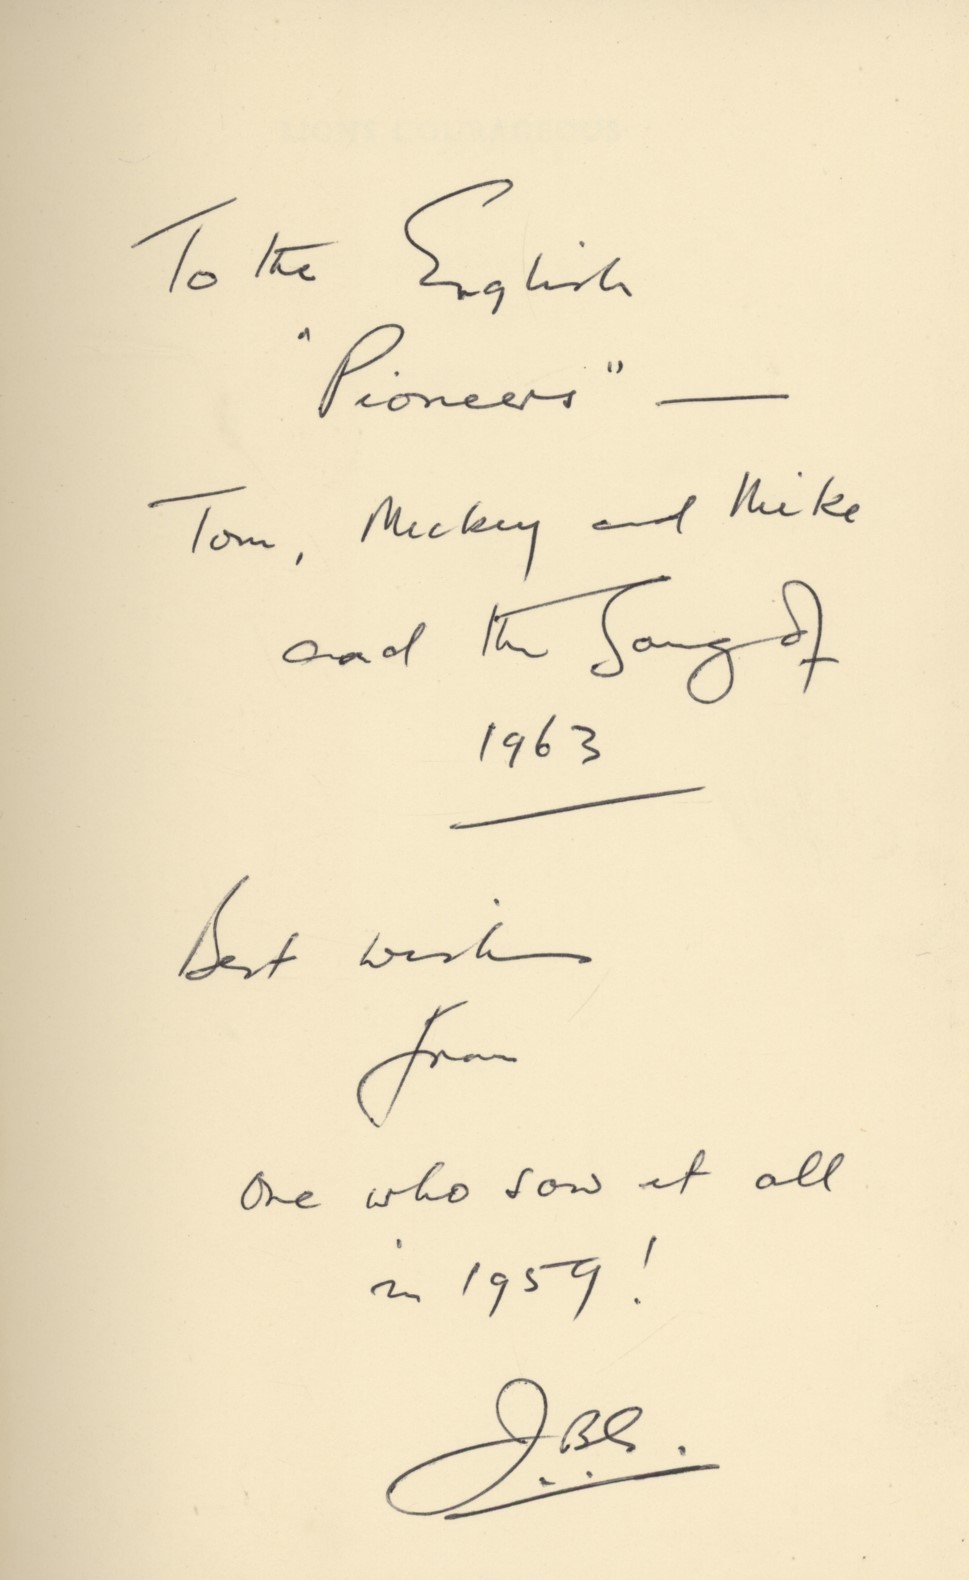 LIONS COURAGEOUS
To the English
"Pioneers" —
Tom, Mickey and Mike
and the Gang of
1963
Best wishes
from
One who saw it all
in 1959!